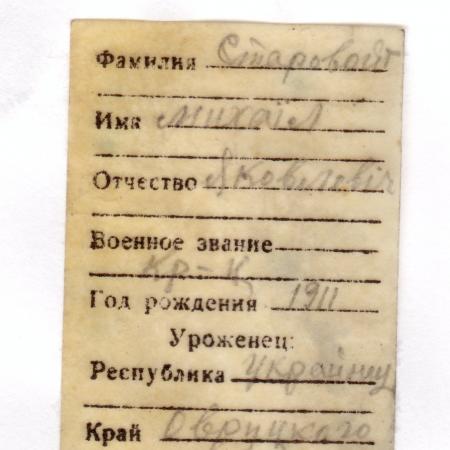 Фамилия Старовойт
Имя Михаїл
Отчество Яковлевіч
Военное звание
Кр-ц
Год рождения 1911
Уроженец:
Республика Українец
Край Овруцкого